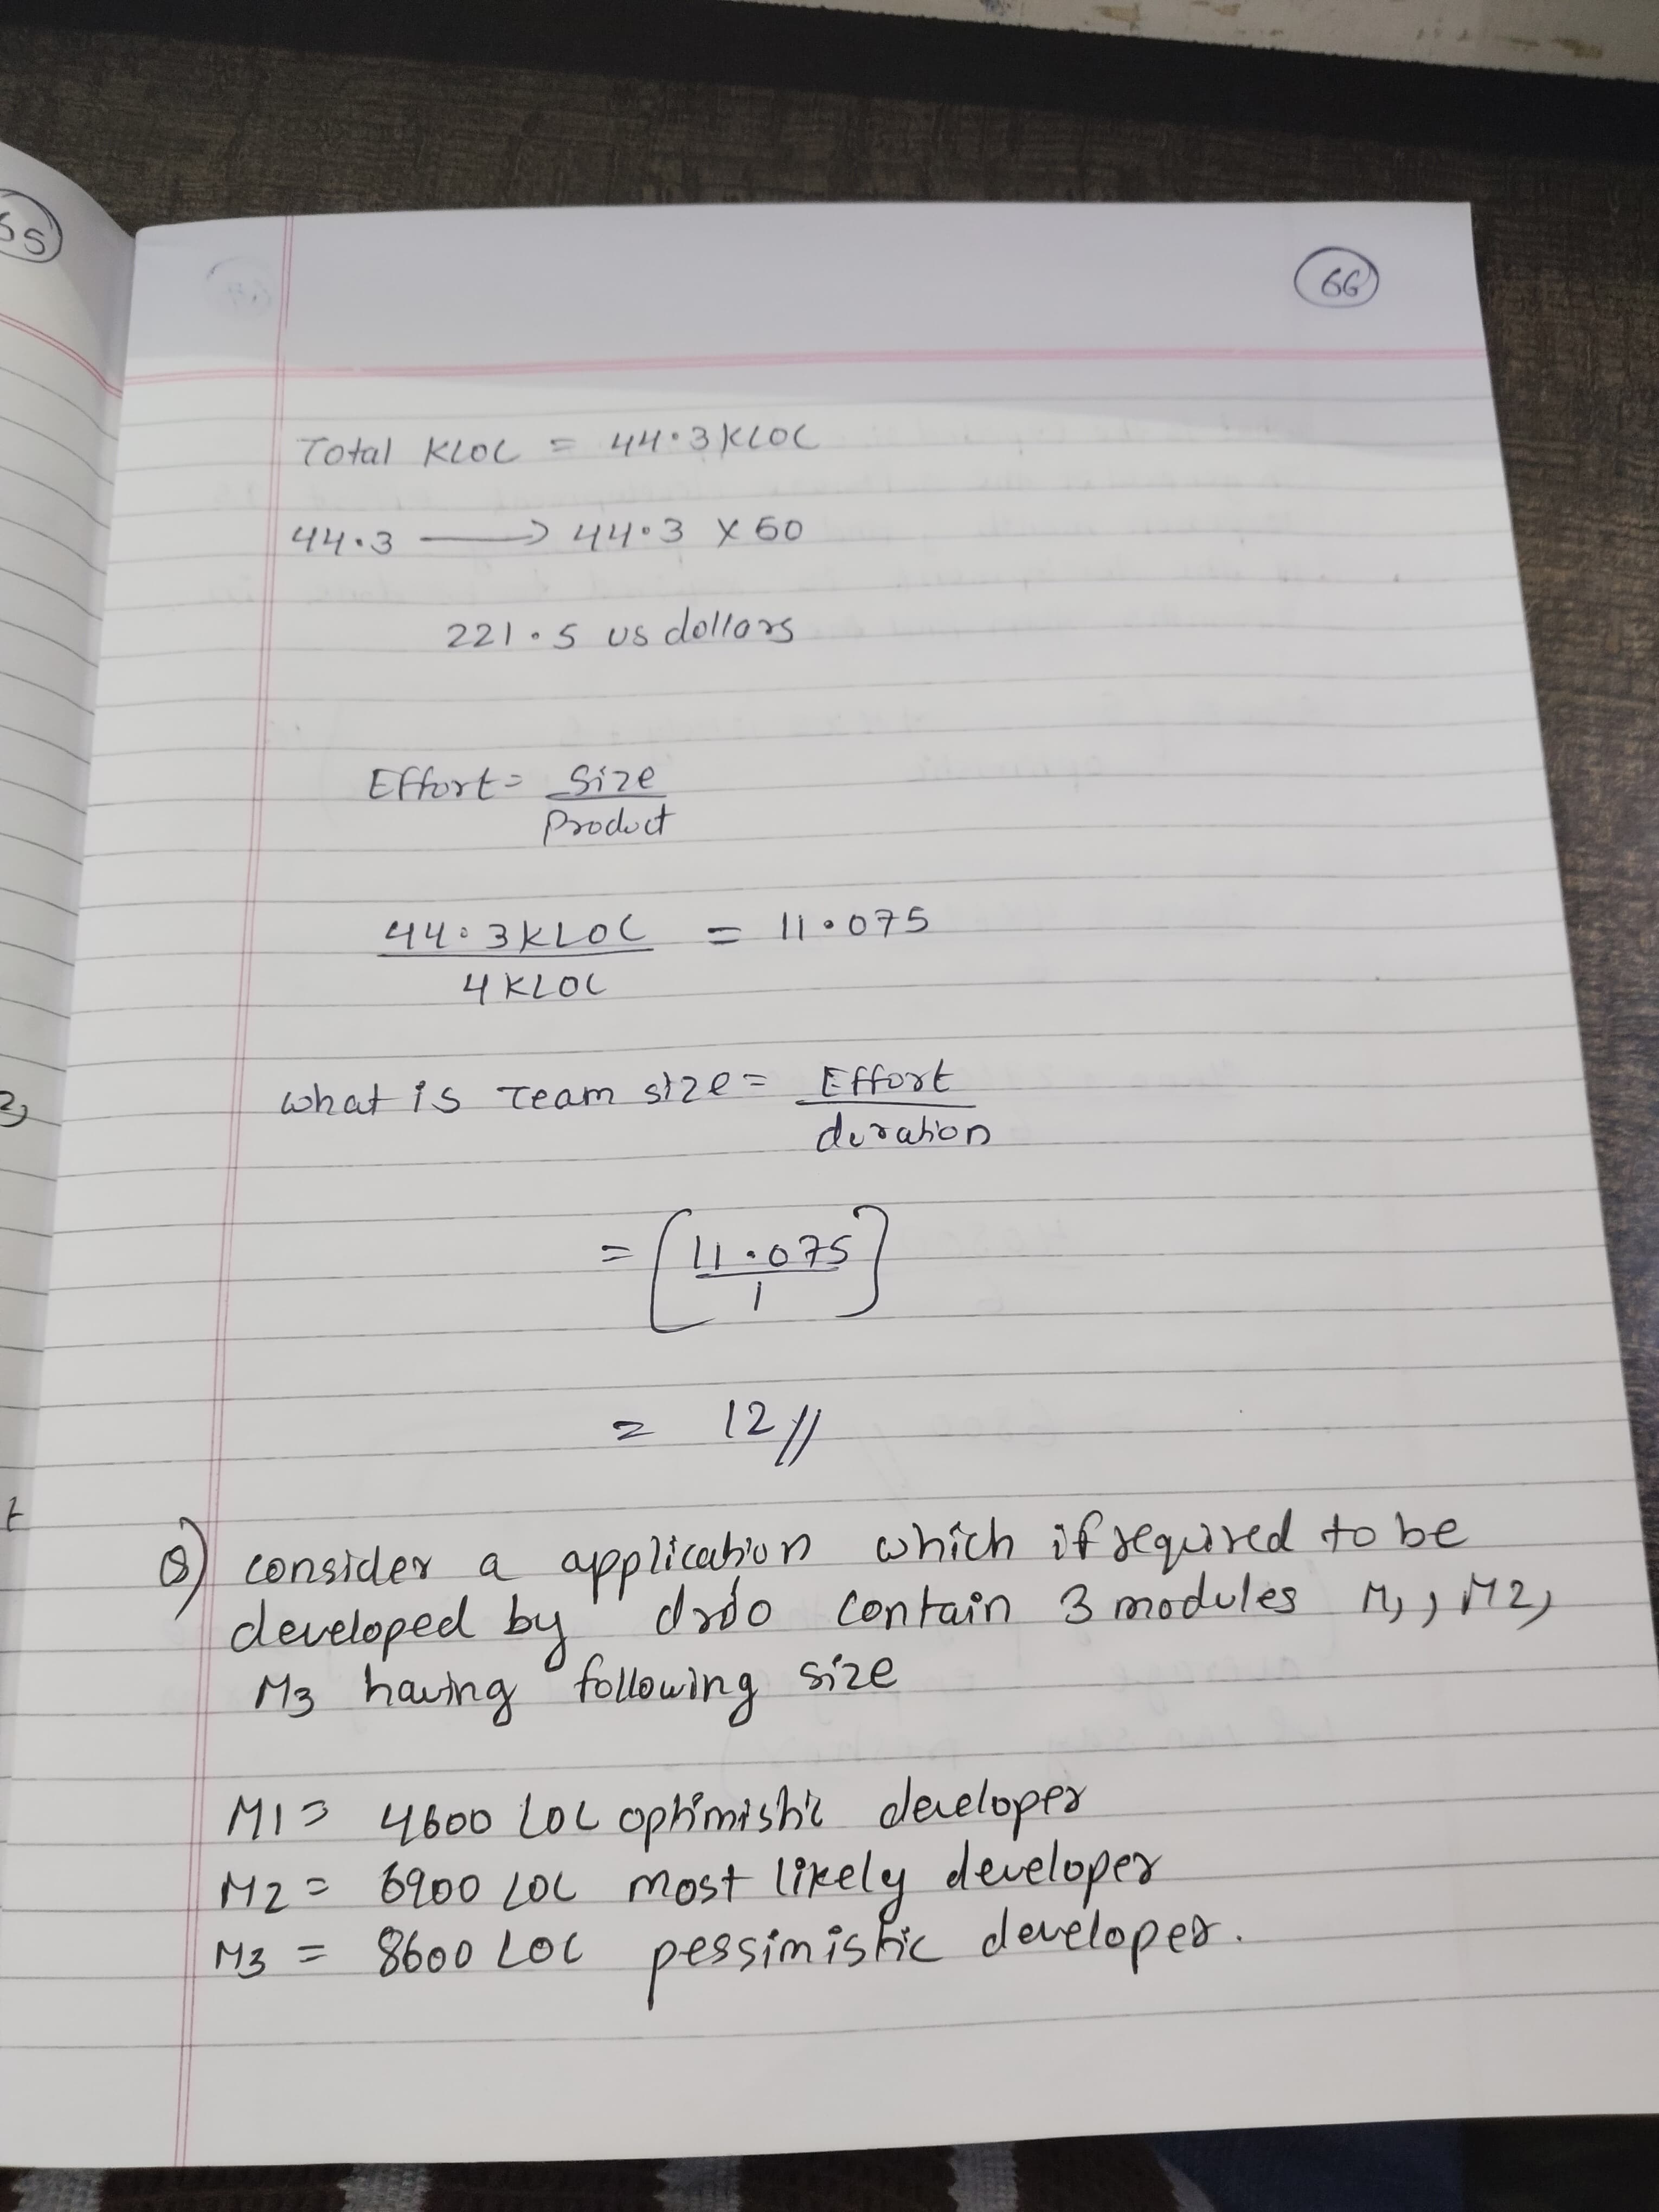 55
66
Total KLOC = 44.3 KLOC
44.3 → 44.3 x 50
221.5 us dollars
Effort = Size
Product
44.3 KLOC = 11.075
4 KLOC
what is Team size = Effort
duration
= [11.075]
1
= 12 //
2,
t
Q) consider a application which if required to be
developed by drdo contain 3 modules M1, M2,
M3 having following size
M1 = 4600 LOC optimistic developer
M2 = 6900 LOC most likely developer
M3 = 8600 LOC pessimistic developer.